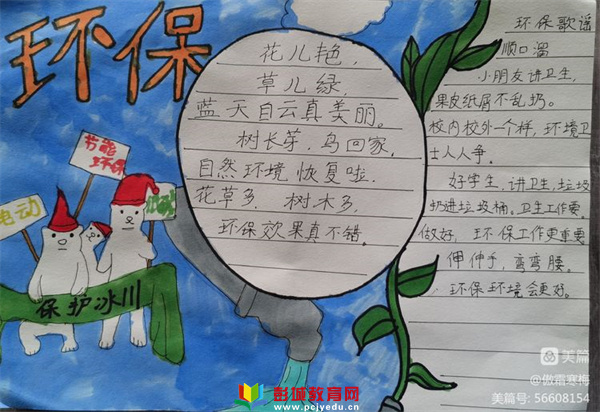 环保
节能
环保
电动
保护冰川
花儿艳，
草儿绿，
蓝天白云真美丽。
树长芽，鸟回家，
自然环境恢复啦，
花草多，树木多，
环保效果真不错。
环保歌谣
顺口溜
小朋友讲卫生，
果皮纸屑不乱扔。
校内校外一个样，环境卫
士人人争。
好学生，讲卫生，垃圾
扔进垃圾桶。卫生工作要
做好，环保工作更重要
伸伸手，弯弯腰。
环保环境会更好。
美篇
@傲霜寒梅
美篇号：56608154
彭城教育网
www.pcjyedu.cn